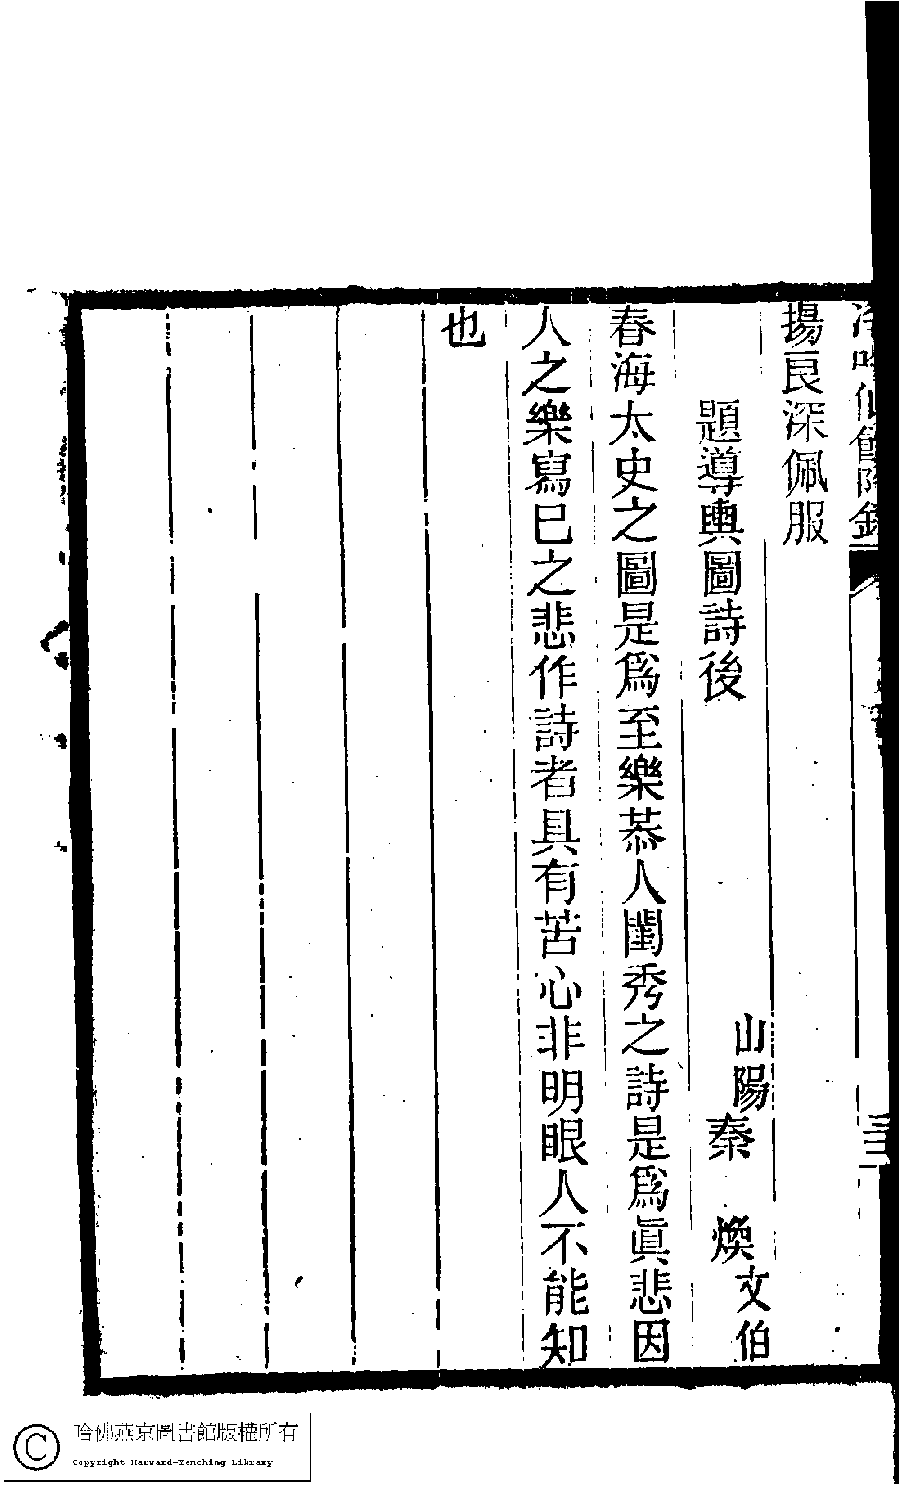 揚艮深佩服
題導輿圖詩後
山陽秦 煥文伯
春海太史之圖是爲至樂恭人閨秀之詩是爲眞悲因
人之樂寫巳之悲作詩者具有苦心非明眼人不能知
也
哈佛燕京圖書館版權所有
Copyright Harvard-Yenching Library